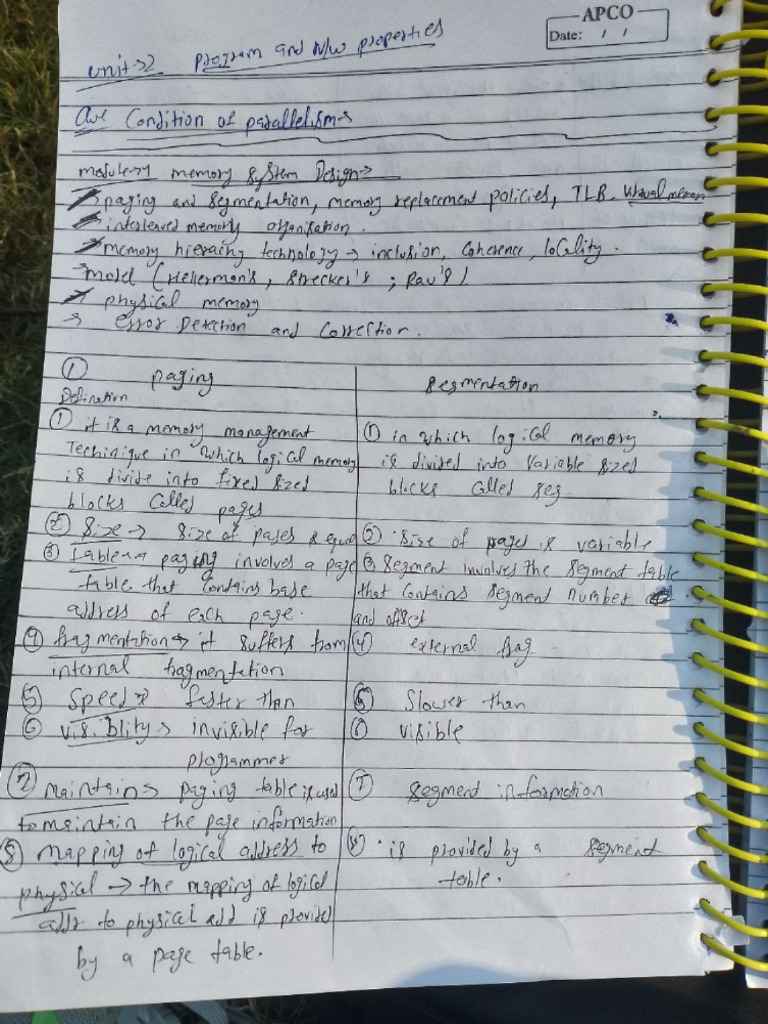 APCO
Date: / /
Unit→2 Program and N/w properties
Que Condition of parallelism→
module→1 memory system Design→
→ paging and segmentation, memory replacement policies, TLB. Virtual memory
→ interleaved memory organisation.
→ memory hierarchy technology → inclusion, Coherence, locality.
→ model (Hellerman's, Strecker's ; Rau's)
→ physical memory
→ Error Detection and Correction.
① paging
Segmentation
Defination
① it is a memory management
Technique in which logical memory
is divide into fixed sized
blocks Called pages
① in which logical memory
is divided into variable sized
blocks called seg
② Size → Size of pages is equal
② Size of pages is variable
③ Table → paging involves a page
table that Contains base
address of each page.
③ Segment involves the segment table
that contains segment number
and offset
④ fragmentation → it suffers from
internal fragmentation
④ external frag
⑤ Speed → faster than
⑤ Slower than
⑥ visiblity → invisible for
programmer
⑥ visible
⑦ maintain → paging table is used
to maintain the page information
⑦ segment information
⑧ mapping of logical address to
physical → the mapping of logical
addr to physical add is provided
by a page table.
⑧ is provided by a segment
table.